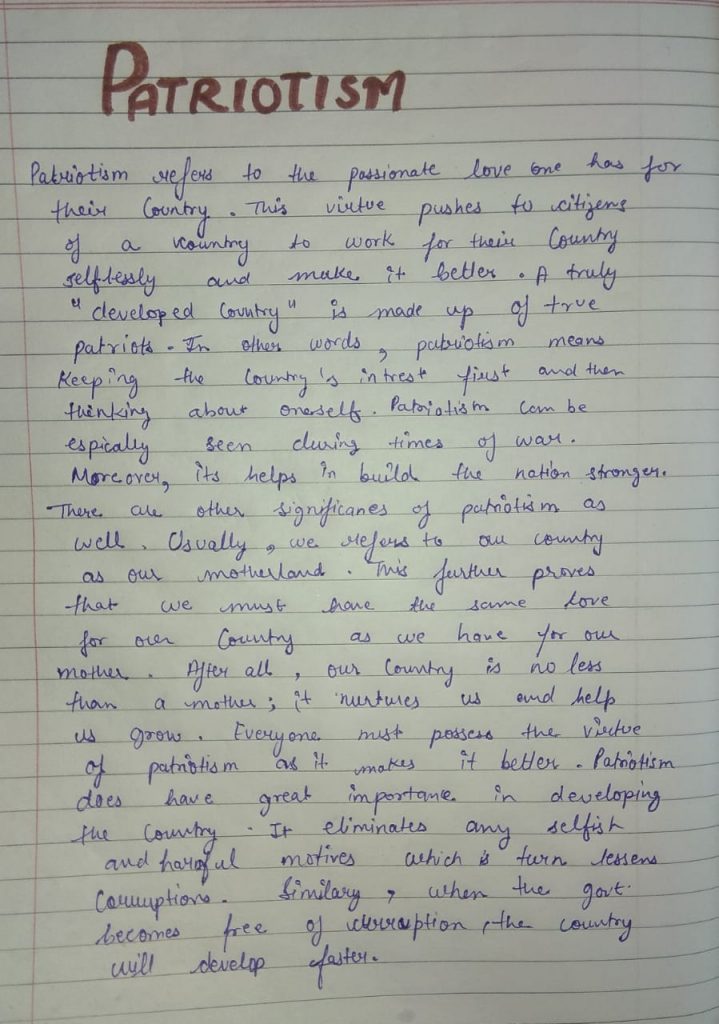 PATRIOTISM
Patriotism refers to the passionate love one has for
their Country. This virtue pushes to citizens
of a country to work for their Country
selflessly and make it better. A truly
"developed Country" is made up of true
patriots. In other words, patriotism means
Keeping the Country's intrest first and then
thinking about oneself. Patriotism can be
espically seen during times of war.
Moreover, its helps in build the nation stronger.
There are other significanes of patriotism as
well. Usually, we refers to our country
as our motherland. This further proves
that we must have the same love
for our Country as we have for our
mother. After all, our Country is no less
than a mother; it nurtures us and help
us grow. Everyone must possess the virtue
of patriotism as it makes it better. Patriotism
does have great importance in developing
the Country. It eliminates any selfish
and harmful motives which is turn lessens
Corruptions. Similary, when the govt.
becomes free of corruption, the country
will develop faster.